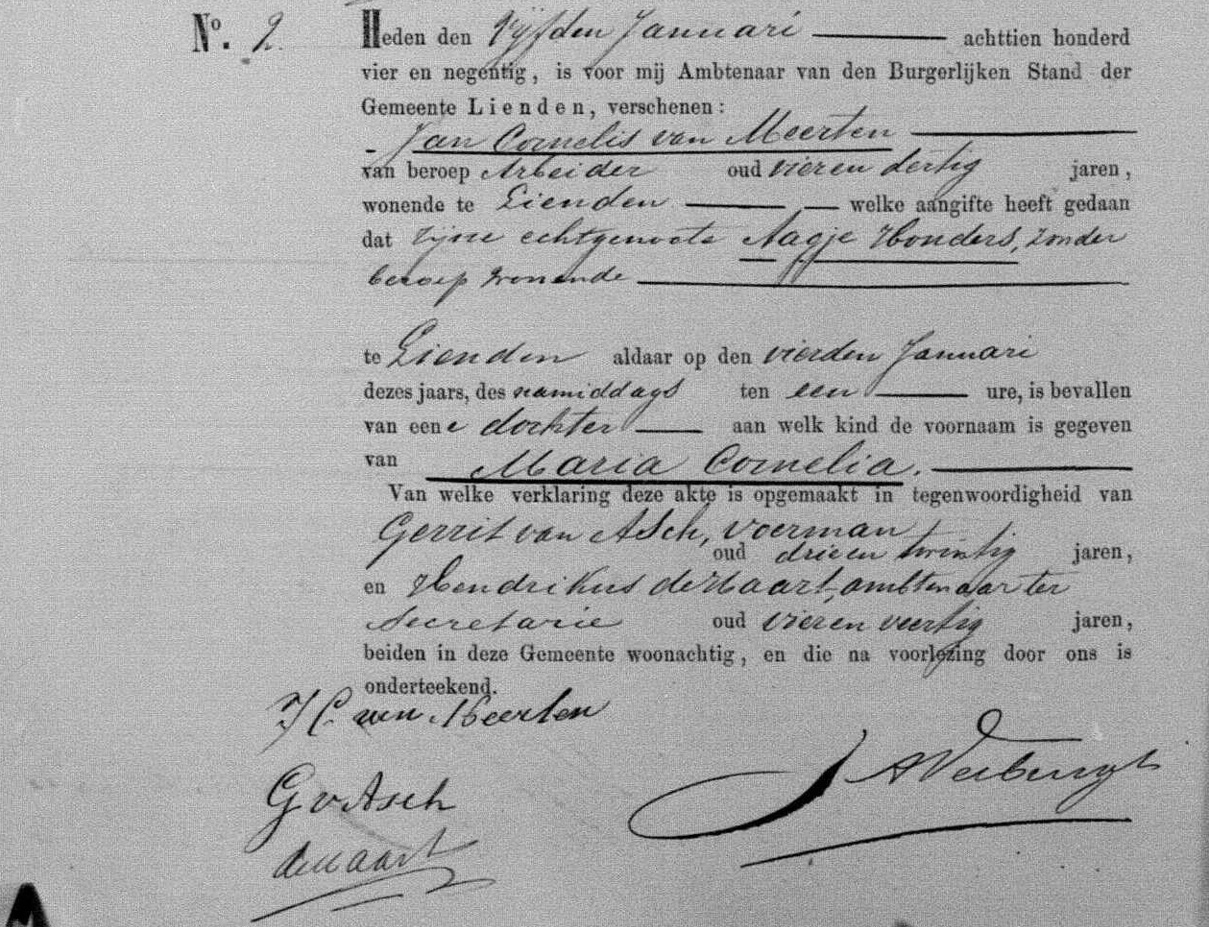 No. 2.
Heden den Vijfden Januari achttien honderd
vier en negentig, is voor mij Ambtenaar van den Burgerlijken Stand der
Gemeente Lienden, verschenen:
Jan Cornelis van Meerten
van beroep Arbeider oud vieren dertig jaren,
wonende te Lienden welke aangifte heeft gedaan
dat zijne echtgenoote Aagje Honders, zonder
beroep wonende
te Lienden aldaar op den vierden Januari
dezes jaars, des namiddags ten een ure, is bevallen
van eene dochter aan welk kind de voornaam is gegeven
van Maria Cornelia.
Van welke verklaring deze akte is opgemaakt in tegenwoordigheid van
Gerrit van Asch, voerman
oud drieen twintig jaren,
en Hendrikus de Haart, ambtenaar ter
Secretarie oud vieren veertig jaren,
beiden in deze Gemeente woonachtig, en die na voorlezing door ons is
onderteekend.
J C. van Meerten
G v Asch
deHaart